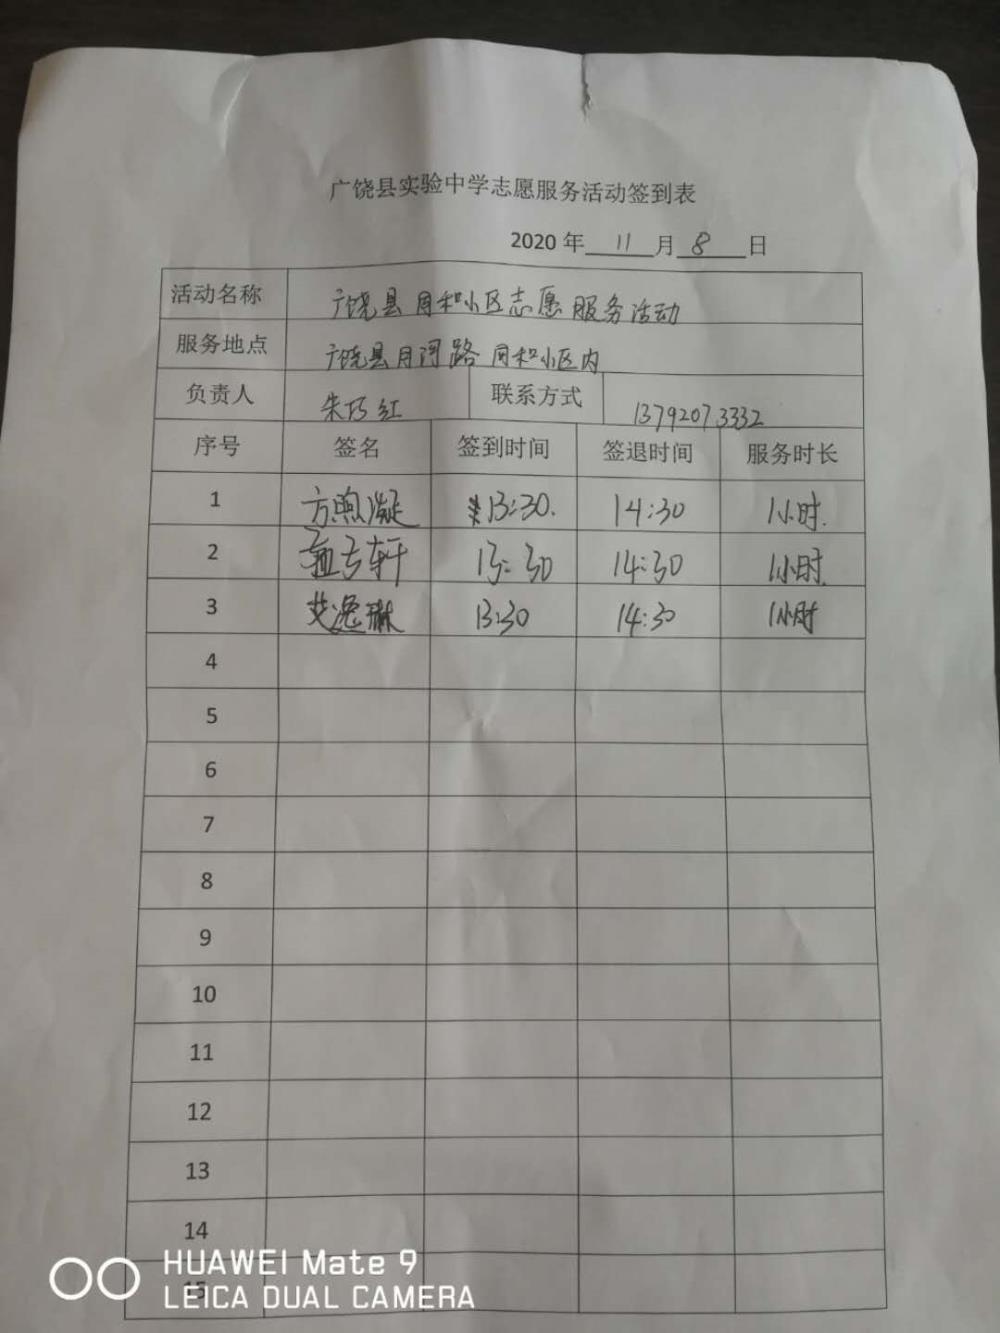 广饶县实验中学志愿服务活动签到表
2020 年 11 月 8 日
活动名称 广饶县同和小区志愿服务活动
服务地点 广饶县月河路 同和小区内
负责人 朱巧红 联系方式 13792073332
序号 签名 签到时间 签退时间 服务时长
1 方煦凝 13:30. 14:30 1小时.
2 轩 13:30 14:30 1小时.
3 艾逸琳 13:30 14:30 1小时
4
5
6
7
8
9
10
11
12
13
14
15
HUAWEI Mate 9
LEICA DUAL CAMERA